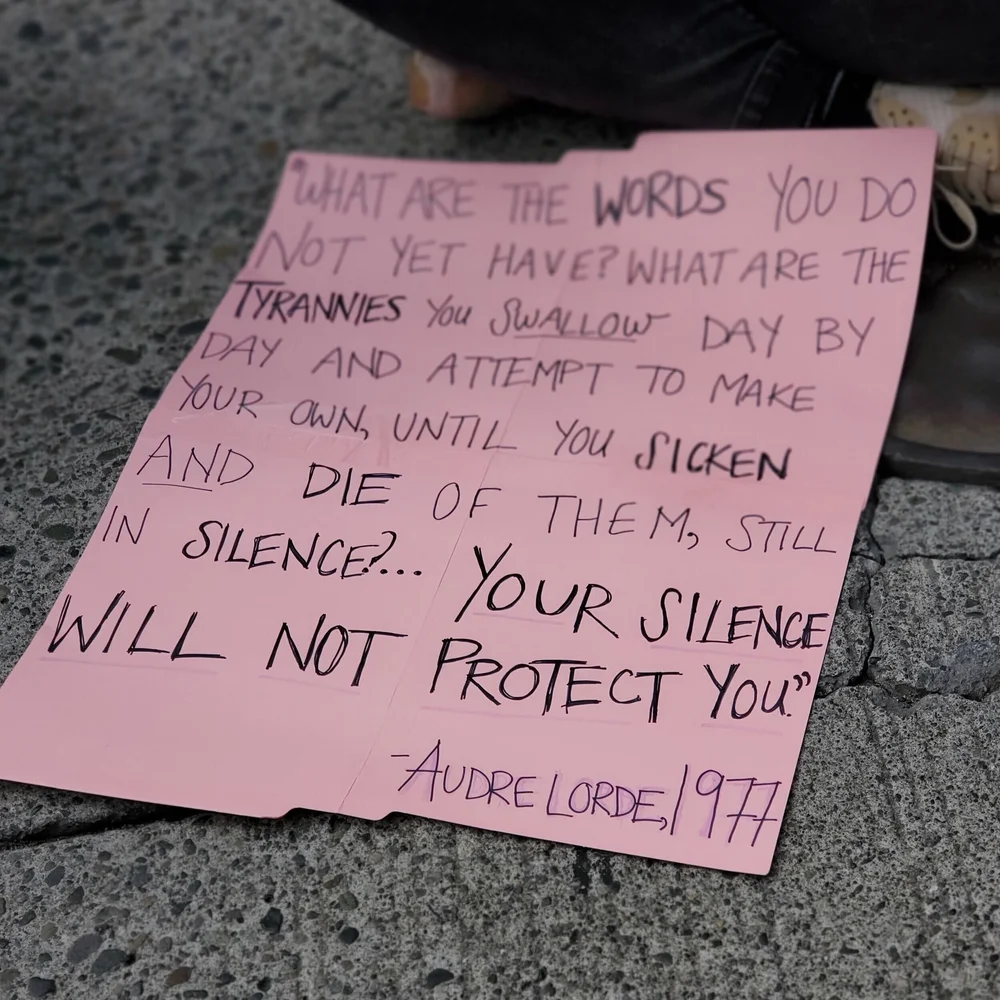 "WHAT ARE THE WORDS YOU DO
NOT YET HAVE? WHAT ARE THE
TYRANNIES YOU SWALLOW DAY BY
DAY AND ATTEMPT TO MAKE
YOUR OWN, UNTIL YOU SICKEN
AND DIE OF THEM, STILL
IN SILENCE?... YOUR SILENCE
WILL NOT PROTECT YOU."
-AUDRE LORDE, 1977